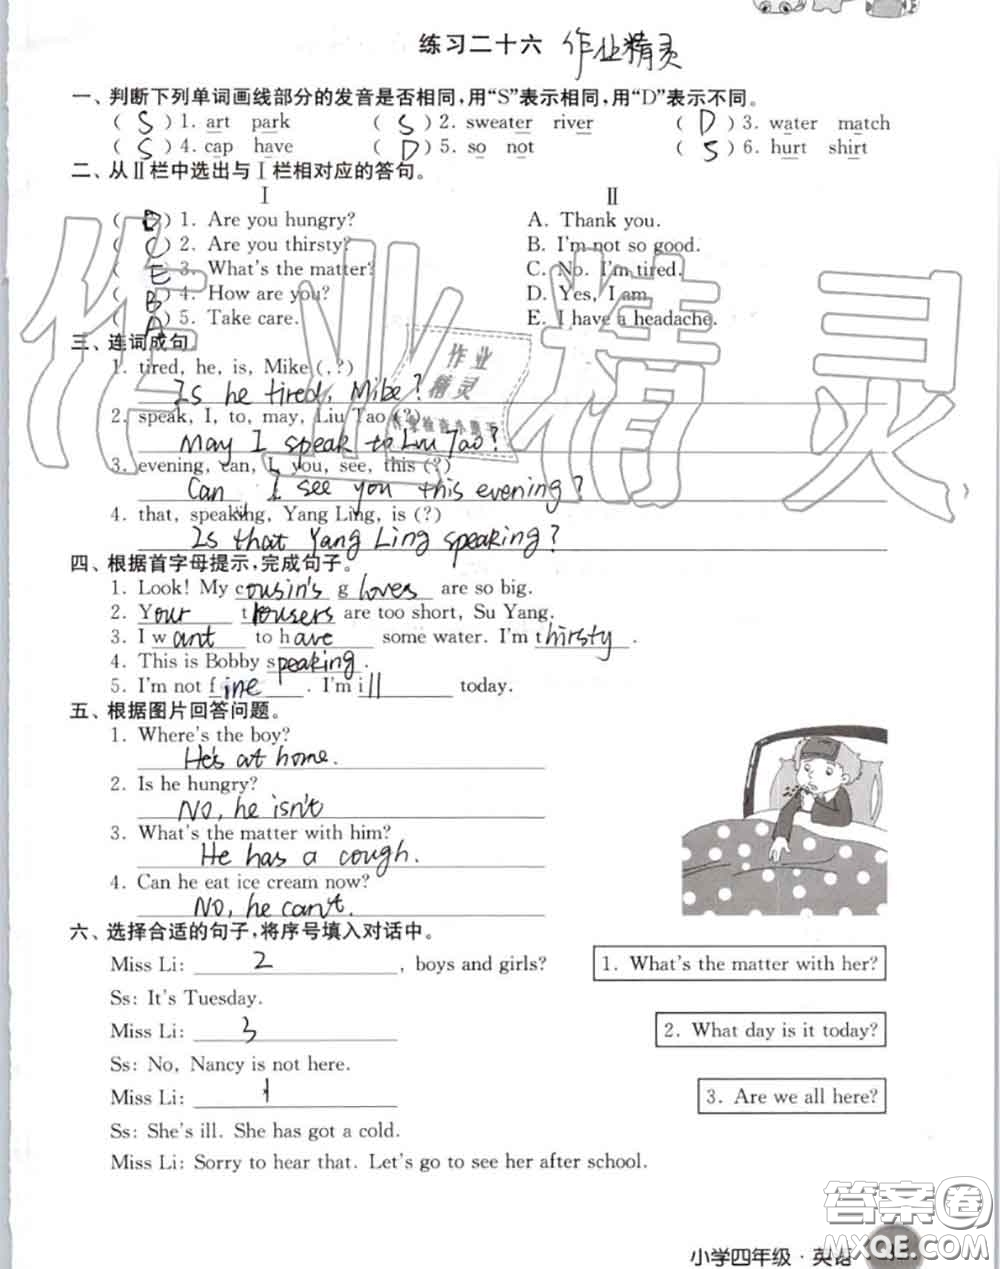 练习二十六 作业精灵
一、判断下列单词画线部分的发音是否相同,用“S”表示相同,用“D”表示不同。
( S ) 1. art park ( S ) 2. sweater river ( D ) 3. water match
( S ) 4. cap have ( D ) 5. so not ( S ) 6. hurt shirt
二、从Ⅱ栏中选出与Ⅰ栏相对应的答句。
Ⅰ Ⅱ
( D ) 1. Are you hungry? A. Thank you.
( C ) 2. Are you thirsty? B. I'm not so good.
( E ) 3. What's the matter? C. No. I'm tired.
( B ) 4. How are you? D. Yes, I am.
( A ) 5. Take care. E. I have a headache.
三、连词成句。
1. tired, he, is, Mike (,?)
Is he tired, Mike?
2. speak, I, to, may, Liu Tao (?)
May I speak to Liu Tao?
3. evening, can, I, you, see, this (?)
Can I see you this evening?
4. that, speaking, Yang Ling, is (?)
Is that Yang Ling speaking?
四、根据首字母提示,完成句子。
1. Look! My cousin's gloves are so big.
2. Your trousers are too short, Su Yang.
3. I want to have some water. I'm thirsty.
4. This is Bobby speaking.
5. I'm not fine. I'm ill today.
五、根据图片回答问题。
1. Where's the boy?
He's at home.
2. Is he hungry?
No, he isn't
3. What's the matter with him?
He has a cough.
4. Can he eat ice cream now?
No, he can't.
六、选择合适的句子,将序号填入对话中。
Miss Li: 2 , boys and girls? 1. What's the matter with her?
Ss: It's Tuesday.
Miss Li: 3 2. What day is it today?
Ss: No, Nancy is not here.
Miss Li: 1 3. Are we all here?
Ss: She's ill. She has got a cold.
Miss Li: Sorry to hear that. Let's go to see her after school.
小学四年级·英语
作业精灵
作业
精灵
答案卷
MXQE.COM